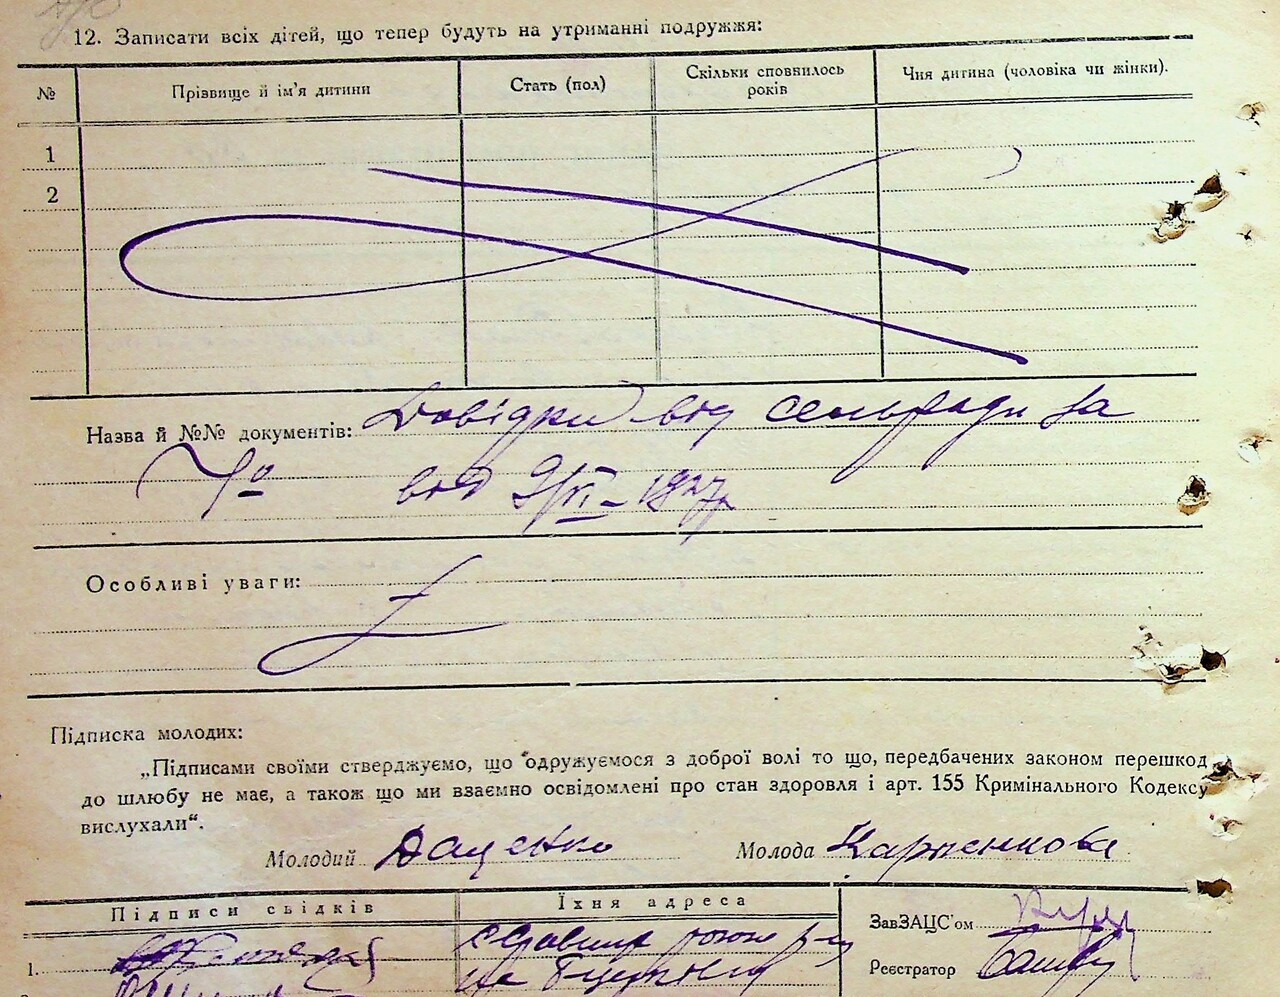 12. Записати всіх дітей, що тепер будуть на утриманні подружжя:
№ Прізвище й ім'я дитини Стать (пол) Скільки сповнилось років Чия дитина (чоловіка чи жінки).
1
2
Назва й №№ документів: Довідки від сельради за
від 9/VI – 1927р
Особливі уваги:
Підписка молодих:
„Підписами своїми стверджуємо, що одружуємося з доброї волі то що, передбачених законом перешкод
до шлюбу не має, а також що ми взаємно освідомлені про стан здоровля і арт. 155 Кримінального Кодексу
вислухали“.
Молодий Даценко Молода Карпенкова
Підписи свідків Їхня адреса
ЗавЗАЦС'ом
1.
Реєстратор